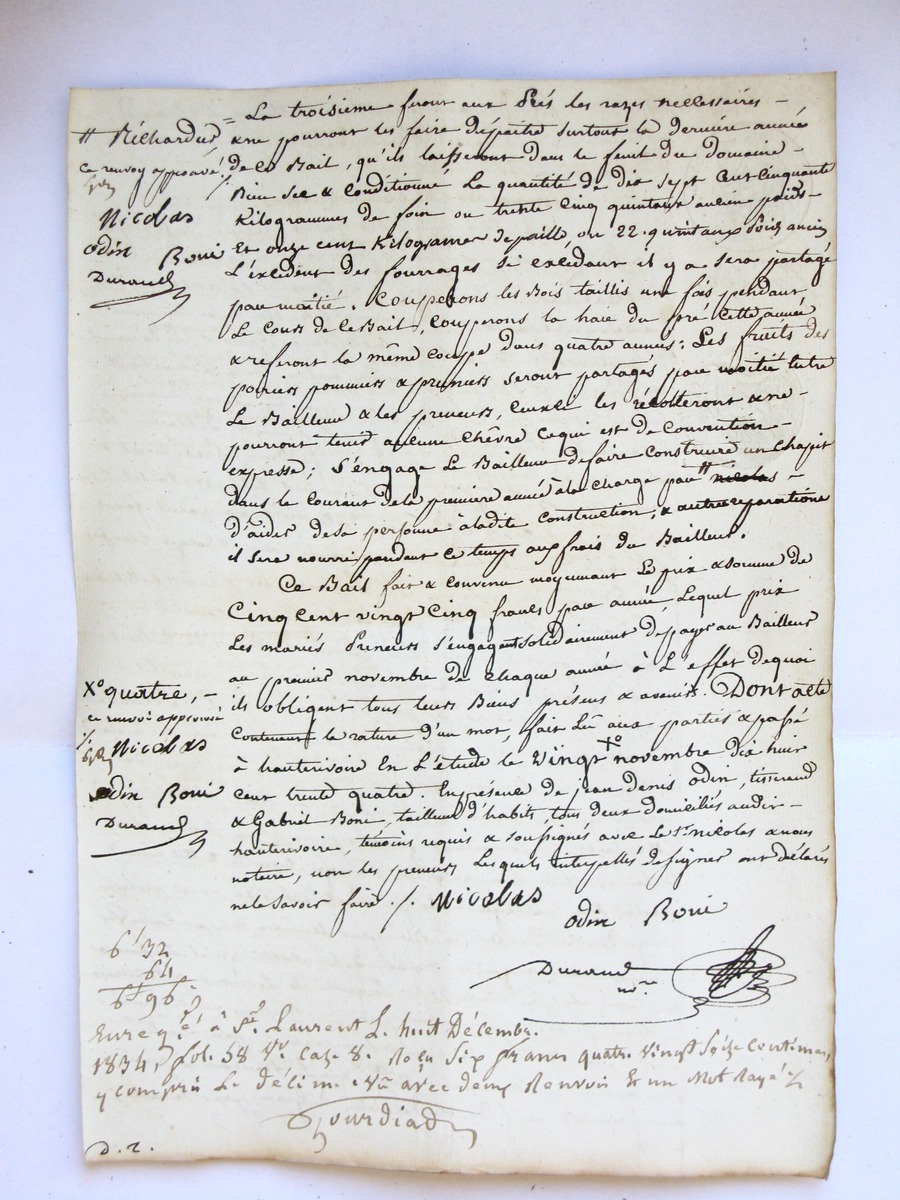 = La troisieme feront aux Prés les razes nécessaires -
& ne pourront les faire dépaitre surtout la derniére année
de ce Bail, qu'ils laisseront dans le fenil du domaine -
Bien sec & conditionné La quantité de dix sept Cent Cinquante
Kilogrammes de foin ou trente cinq quintaux ancien poids -
Et onze cent Kilogrames de paille, ou 22. quintaux poids ancien
L'éxcédent des fourrages si excédant il y a sera partagé
par moitié. Couperons les Bois taillis une fois pendant
Le Cours de ce Bail, Couperons la haie du pré Cette année
& referont la même coupe dans quatre années: Les fruits des
poiriers pommiers & pruniers seront partagés par moitié Entre
Le Bailleur & les preneurs, ceux ci les récolteront & ne -
pourront tenir aucune Chêvre Ce qui est de Convention -
expresse; S'engage Le Bailleur de faire Construire un Chapit
dans le Courant de la première année à la Charge par # nicolas -
d'aider de sa personne à ladite Construction, & autre reparations
il sera nourri pendant ce temps aux frais du Bailleur.
Ce Bail fait & Convenu moyennant Le prix & somme de
Cinq Cent vingt Cinq francs par année, Lequel prix
Les mariés Preneurs s'engagent solidairement de payer au Bailleur
au premier novembre de Chaque année à L'effet de quoi
ils obligent tous leurs Biens présens & avenirs. Dont acte
Contenant la rature d'un mot, fait Lû aux parties & passé
à hauterivoire En L'étude le Vingt X° novembre Dix huit
cent trente quatre. En présence de jean denis odin, tisserand
& Gabriel Boni, tailleur d'habits, tous deux domiciliés audit -
hauterivoire, témoins requis & soussignés avec Le Sr. nicolas & nous
notaire, non les preneurs Lesquels Interpellés de signer ont déclarés
ne le savoir faire ./. Nicolas
odin Boni
Durand
nre
# Richard
ce renvoy approuvé ./.
Nicolas
odin Boni
Durand
X° quatre, -
ce renvoi approuvé
./. Nicolas
odin Boni
Durand
6f 32
64
6f 96
Enregé. à St. Laurent L. huit Décembre
1834, fol. 58 Vo. Case 8. Reçu Six francs quatre Vingt Seize Centimes,
y compris Le Décime. Vû avec deux Renvois Et un Mot Rayé ./.
D. 2.